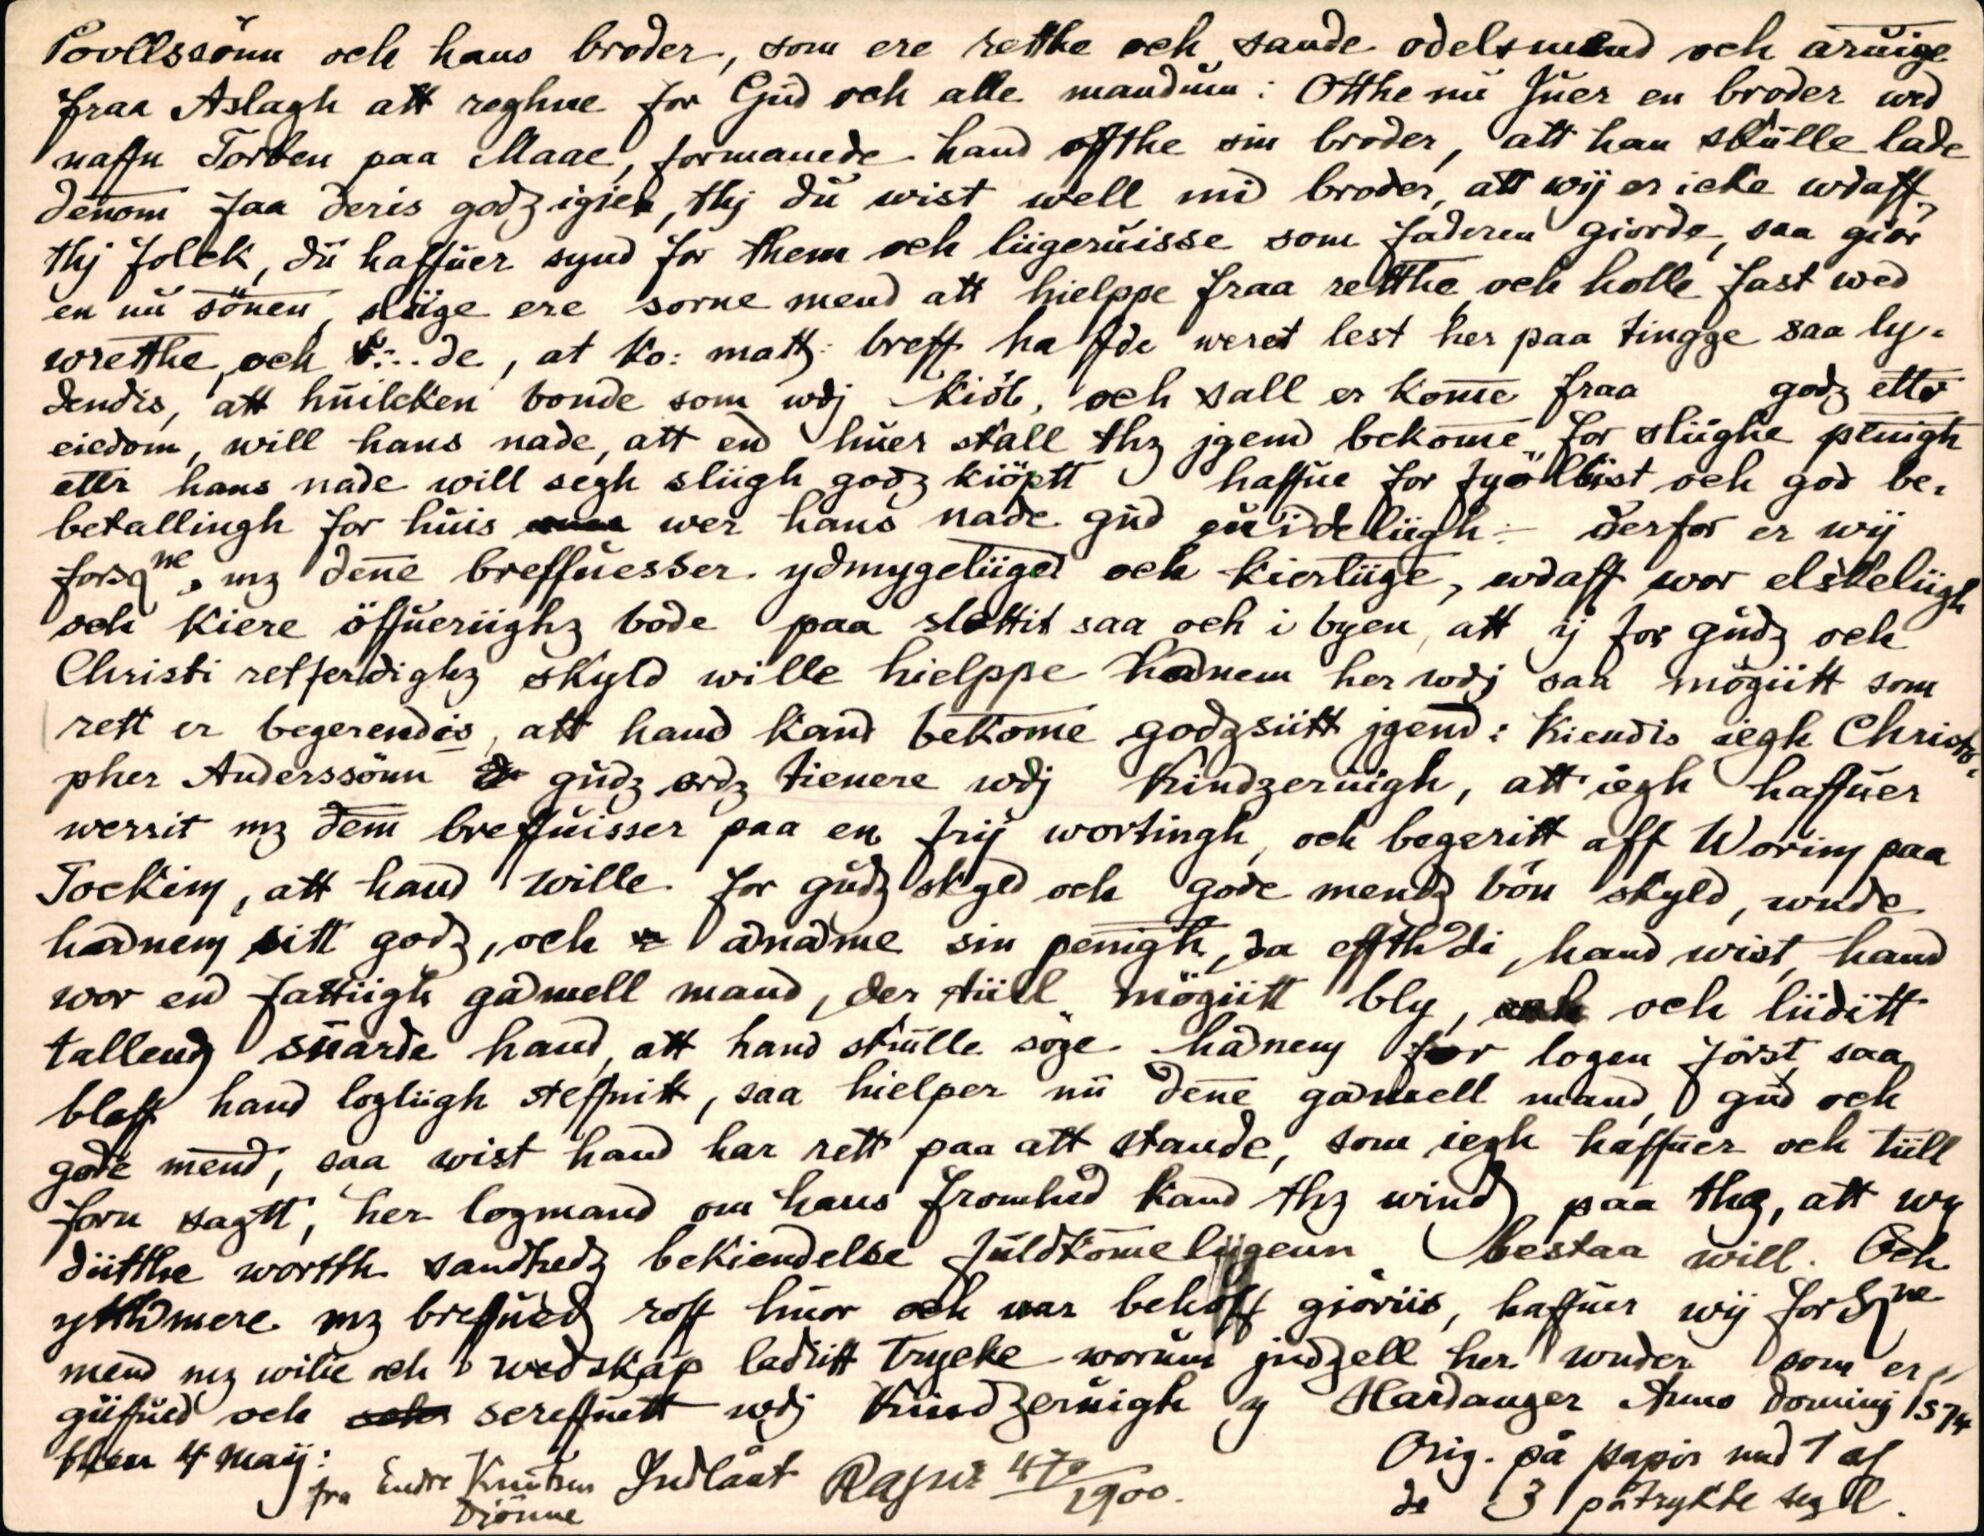 Povllssönn och hans broder, som ere retthe och sande odelsmend och aruige
fraa Aslagh att reghne for Gud och alle mandum: Otthe nu Juer en broder wed
naffn Torben paa Maae, formanede hand offthe sin broder, att han skulle lade
denom faa deris godz igien, thj du wist well mid broder, att wij er icke wdaff
thj folck, du haffuer synd for them och liigeruisse som faderen giorde, saa giör
en nu sönen, sliige ere sorne mend att hielppe fraa retthe och holle fast wed
wretthe, och ... de, at ko: matz: breff haffde weret lest her paa tingge saa ly-
dendis, att huilcken bonde som wdj kiöb, och sall er kome fraa godz etter
eiedom, will hans nade, att end huer skall thz jgend bekome for sliighe penigh
etter hans nade will segh sliigh godz kiöptt haffue for fyölbist och god be-
betallingh for huis wer hans nade gud euideliigh - derfor er wij
forsqne mz dene breffuesser ydmygeliiged och kierliige, wdaff wor elskeliigh
och kiere öffueriighz bode paa slottit saa och i byen, att ij for gudz och
Christi retferdighz skyld wille hielppe hadnem her wdj saa mögiitt som
rett er begerendis, att hand kand bekome godzsiitt jgend: kiendis iegh Christo-
pher Anderssönn gudz ordz tienere wdj kindzeruigh, att iegh haffuer
werrit mz dem breffuisser paa en frij wortingh, och begeritt aff Worinn paa
Tockim, att hand wille for gudz skyld och gode mendz bön skyld, wnde
hadnem sitt godz, och adnadme sin penigh, da effthdi, hand wist, hand
wor end fattiigh gadmell mand, der tiill mögiitt bly, och liiditt
tallendz suarde hand, att hand skulle söge hadnem for logen först, saa
bleff hand logliigh steffnitt, saa hielper nu dene gadmell mand, gud och
gode mend, saa wist hand har rett paa att stande, som iegh haffuer och tiill
forn sagtt, her logmand om hans fromhed kand thz wind paa thz, att wy
diitthe wortth sandhedz bekiendelse fuldkomeligenn bestaa will. Och
ytthdmere mz breffuedz roff huor och nar behoff giöriis, haffuer wij forsqne
mend mz wilie och wedskap ladiitt trycke worum jndzell her wnder som er
giifued och screffuett wdj Kindzeruigh y Hardanger Anno dominj 1574
then 4 Maij:
fra Endre Knutsen Djönne Indlånt Rasmus 4/70 1900.
Orig. på papir med 1 af
de 3 påtrykte segll.